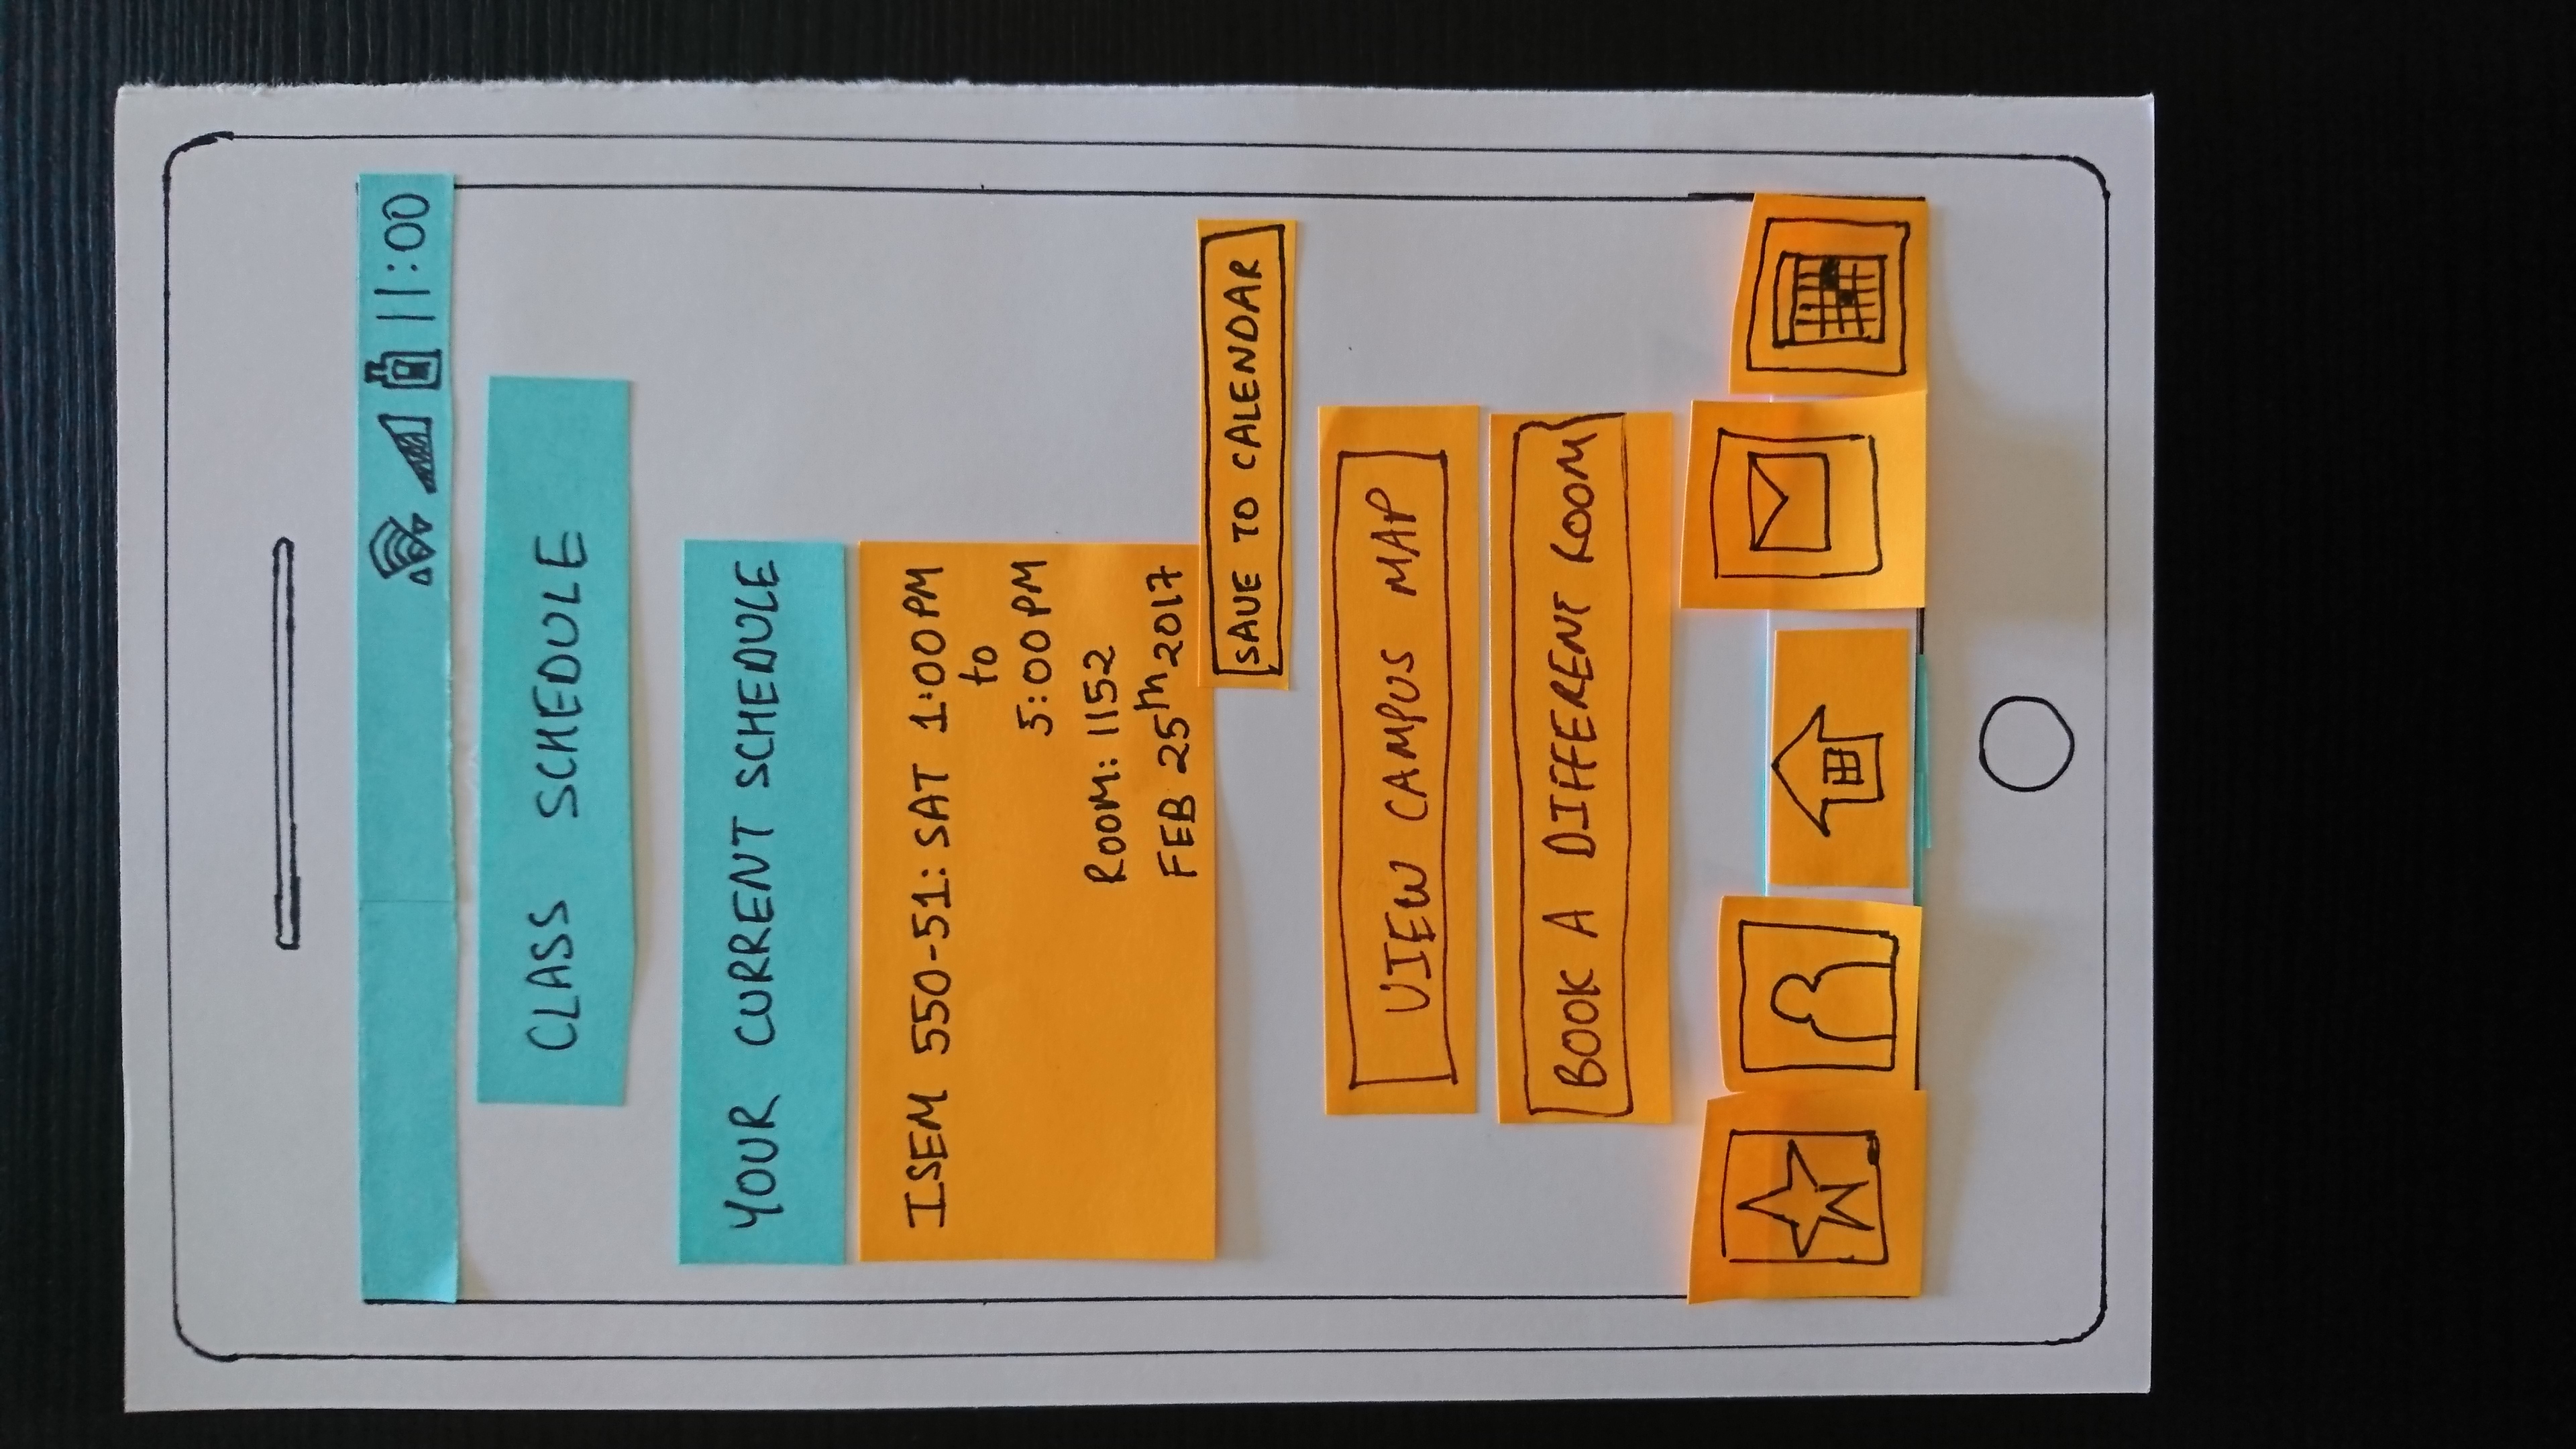 11:00
CLASS SCHEDULE
YOUR CURRENT SCHEDULE
ISEM 550-51: SAT 1:00 PM
to
5:00 PM
ROOM: 1152
FEB 25th 2017
SAVE TO CALENDAR
VIEW CAMPUS MAP
BOOK A DIFFERENT ROOM